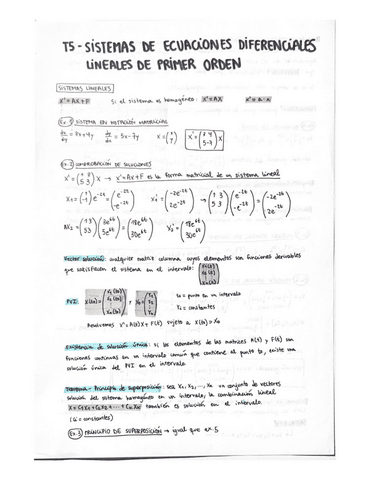 T5 - SISTEMAS DE ECUACIONES DIFERENCIALES
LINEALES DE PRIMER ORDEN
SISTEMAS LINEALES
X' = AX + F Si el sistema es homogéneo: X' = AX
Ex. 1 SISTEMA EN NOTACIÓN MATRICIAL
= 5x - 7y
Ex. 2 COMPROBACIÓN DE SOLUCIONES
X' = (1 3 5 3) X → X' = AX + F es la forma matricial de un sistema lineal
X₁ = (1 -1) e^-2t = (e^-2t -e^-2t) X₁' = (-2e^-2t 2e^-2t) → (1 3 5 3) (e^-2t -e^-2t) = (-2e^-2t 2e^-2t)
AX₂ = (1 3 5 3) (3e^6t 5e^6t) = (18e^6t 30e^6t) X₂' = (18e^6t 30e^6t)
Vector solución: cualquier matriz columna cuyos elementos son funciones derivables
que satisfacen el sistema en el intervalo:
PVI t₀ = punto en un intervalo
= constantes
Resolvemos X' = A(t)X + F(t) sujeto a X(t₀) = X₀
Existencia de solución única: Si los elementos de las matrices A(t) y F(t) son
funciones continuas en un intervalo común que contiene al punto t₀, existe una
solución única del PVI en el intervalo.
Teorema - Principio de superposición: sea X₁, X₂, ..., Xₙ un conjunto de vectores
solución del sistema homogéneo en un intervalo, la combinación lineal
X = C₁X₁ + C₂X₂ + ... + CₙXₙ también es solución en el intervalo.
(Ci = constantes)
Ex. 3 PRINCIPIO DE SUPERPOSICIÓN → igual que ex. 5